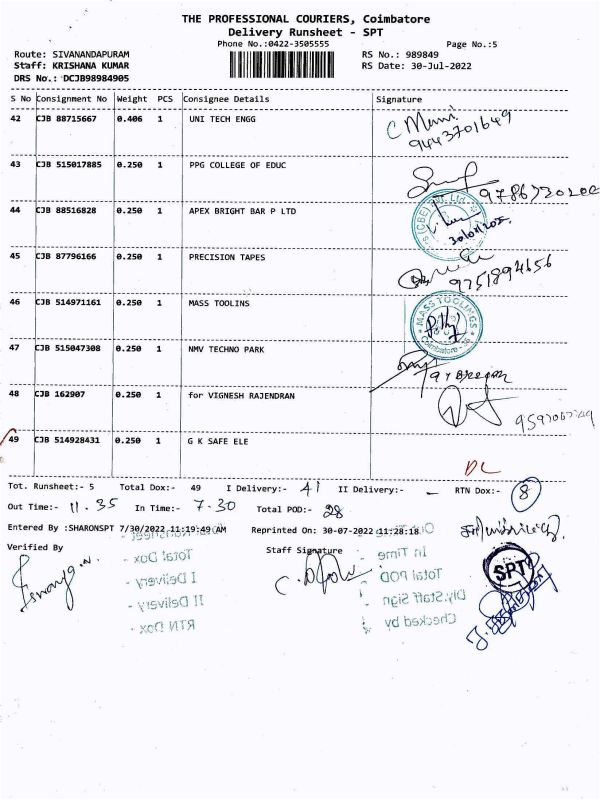 THE PROFESSIONAL COURIERS, Coimbatore
Delivery Runsheet - SPT
Phone No.:0422-3505555
Page No.:5
Route: SIVANANDAPURAM
RS No.: 989849
Staff: KRISHANA KUMAR
RS Date: 30-Jul-2022
DRS No.: DCJB98984905
S No Consignment No Weight PCS Consignee Details Signature
42 CJB 88715667 0.406 1 UNI TECH ENGG
9443701649
43 CJB 515017885 0.250 1 PPG COLLEGE OF EDUC
44 CJB 88516828 0.250 1 APEX BRIGHT BAR P LTD
45 CJB 87796166 0.250 1 PRECISION TAPES
9751894656
46 CJB 514971161 0.250 1 MASS TOOLINS
MASS TOOLINGS
Coimbatore
47 CJB 515047308 0.250 1 NMV TECHNO PARK
48 CJB 162907 0.250 1 for VIGNESH RAJENDRAN
49 CJB 514928431 0.250 1 G K SAFE ELE
DL
Tot. Runsheet:- 5 Total Dox:- 49 I Delivery:- 41 II Delivery:- - RTN Dox:- 8
Out Time:- 11.35 In Time:- 7.30 Total POD:- 28
Entered By :SHARONSPT 7/30/2022 11:19:49 AM Reprinted On: 30-07-2022 11:28:18
Verified By Staff Signature
SPT
Out Time
Total Dox - In Time
I Delivery - Total POD
II Delivery - Dly.Staff Sign
RTN Dox - Checked by